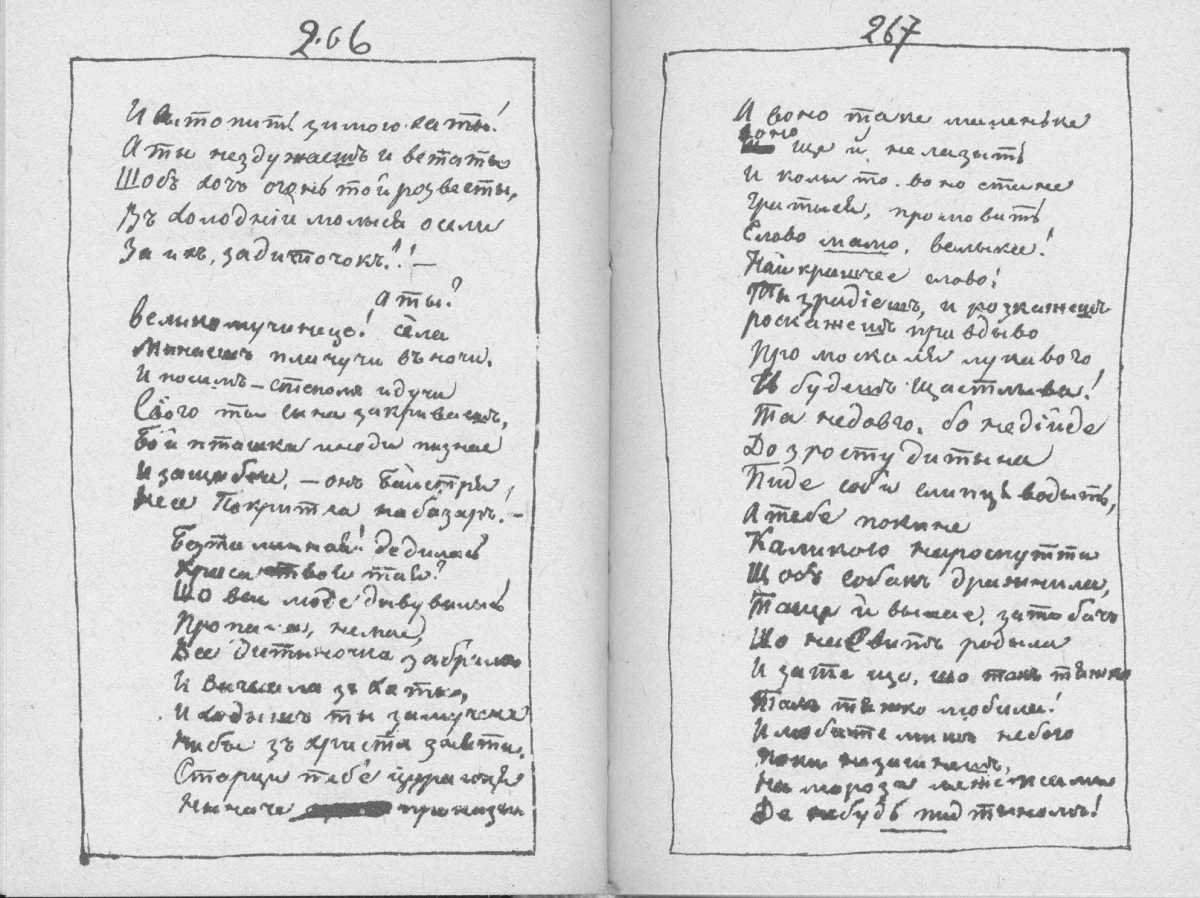 266
И витопить зимою хаты!
А ты нездужаешъ и встаты
Щобъ хочъ огень той розвесты,
Въ холодніи молысь осели
За ихъ, за диточокъ!! —
А ты?
великомучинице! села
Минаешъ плачучи въ ночи.
И полемъ — степомъ идучи
Свого ты сына закриваешъ,
Бо й пташка иноди пизнае
И защебече, — онъ Байстря,
Несе Покритка на базаръ. —
Безталанная! де дилась
Краса твоя тая?
Що вси люде дывувались
Пропала, немае,
Все дитыночка забрала
И вигнала зъ хаты,
И ходышъ ты замучена
Ниби зъ христа знята.
Старци тебе цураюця
Ныначе прокази
267
А воно таке маленьке
воно ще й не лазыть
И колы то воно стане
Гратысь, промовить
Слово мамо, велыке!
Найкращее слово!
Ты зрадіешъ, и розкажешъ
роскажешъ правдыво
Про москаля лукавого
И будешъ щастлыва!
Та недовго, бо недійде
До зросту дитына
Пиде соби слипця водыть,
А тебе покине
Каликою нароспутти
Щобъ собакъ дражнила,
Таще й вылае, зато бачъ
Що на Свитъ родыла
И зате що, що такъ тяжко
Такъ тяжко любила!
И любитемишъ небого
Поки незагинешъ,
На морози межъ псами
Де небудь пид тыномъ!